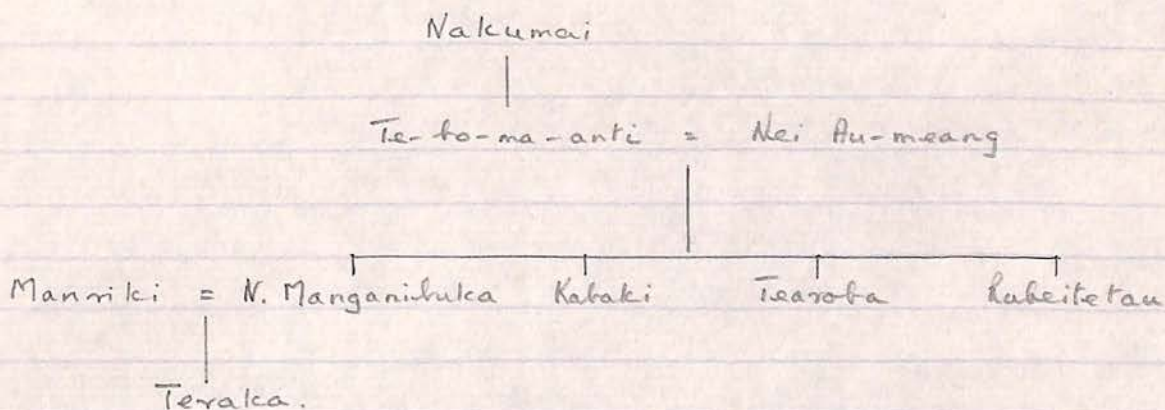 Nakumai
Te-bo-ma-anti = Nei Au-meang
Manriki = N. Manganibuka Kabaki Tearoba
Teraka.